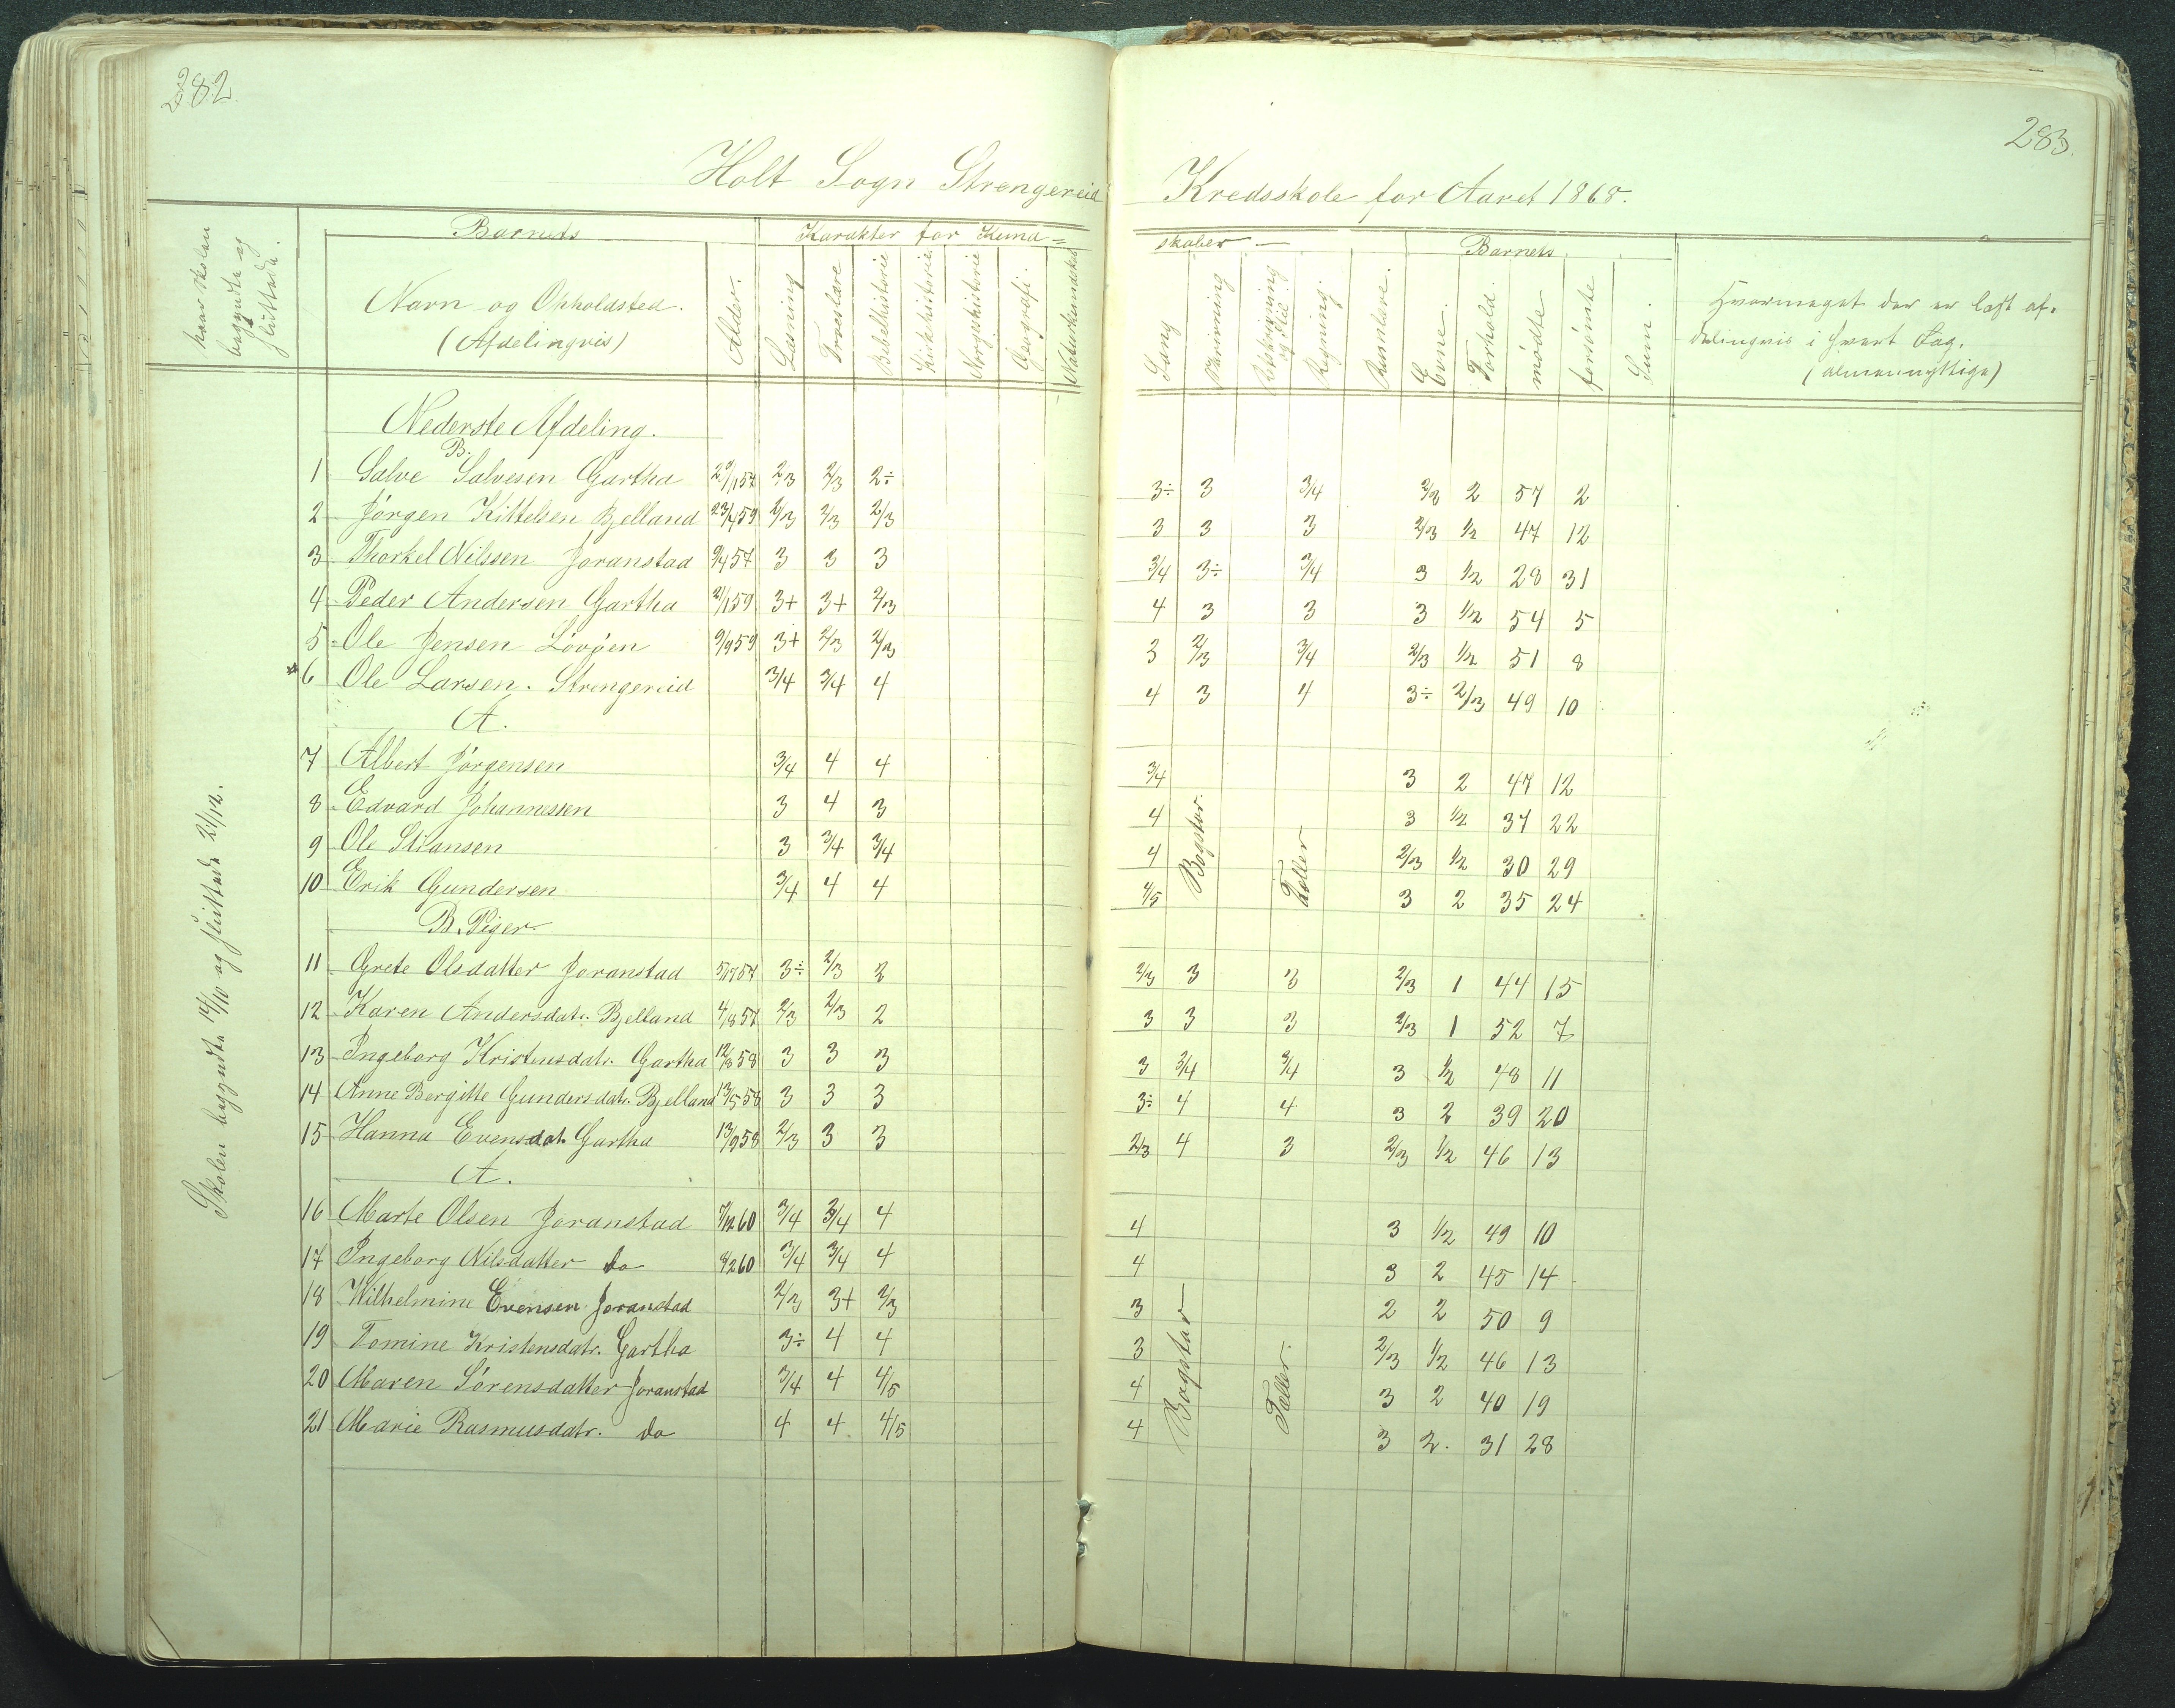 282.
283.
Holt Sogn Strengereid Kredsskole for Aaret 1868.
naar Skolen begyndte og sluttede.
Barnets
Karakter for Kund=
skaber —
Barnets
Navn og Opholdsted. (Afdelingvis)
Alder.
Læsning
Troeslære
Bibelhistorie
Kirkehistorie
Norgeshistorie
Geografi.
Naturkundskab
Sang
Skrivning
Regning.
Evne.
Forhold.
mödte
forsömte
Sum.
Hvormeget der er læst af-
delingvis i hvert Fag.
Skolen begyndte 14/10 og sluttede 21/12.
Nederste Afdeling.
B.
1 Salve Salvesen Gartha 2/3 2/3 2÷ 3÷ 3 3/4 2/3 2 57 2
2 Jörgen Kittelsen Bjelland 23/4 59 2/3 2/3 2/3 3 3 3 2/3 1/2 47 12
3 Thorkel Nilssen Joranstad 9/4 57 3 3 3 3/4 3÷ 3/4 3 1/2 28 31
4 Peder Andersen Gartha 21/1 59 3+ 3+ 2/3 4 3 3 3 1/2 54 5
5 Ole Jensen Lövöen 9/9 59 3+ 2/3 2/3 3 2/3 3/4 2/3 1/2 51 8
6 Ole Larsen. Strengereid 3/4 3/4 4 4 3 4 3÷ 2/3 49 10
A.
7 Albert Jörgensen 3/4 4 4 3/4 3 2 47 12
8 Edvard Johannessen 3 4 3 4 3 1/2 37 22
9 Ole Stiansen 3 3/4 3/4 4 Bogstar Tæller 2/3 1/2 30 29
10 Erik Gundersen 3/4 4 4 4/5 3 2 35 24
B. Piger
11 Grete Olsdatter Joranstad 5/7 57 3÷ 2/3 2 2/3 3 3 2/3 1 44 15
12 Karen Andersdatr. Bjelland 4/8 57 2/3 2/3 2 3 3 3 2/3 1 52 7
13 Ingeborg Kristensdatr. Gartha 12/8 58 3 3 3 3 3/4 3/4 3 1/2 48 11
14 Anne Bergitte Gundersdatr. Bjelland 13/5 58 3 3 3 3÷ 4 4 3 2 39 20
15 Hanna Evensdat. Gartha 13/9 58 2/3 3 3 2/3 4 3 2/3 1/2 46 13
A.
16 Marte Olsen Joranstad 7/12 60 3/4 3/4 4 4 3 1/2 49 10
17 Ingeborg Nilsdatter do 9/2 60 3/4 3/4 4 4 3 2 45 14
18 Wilhelmine Evensen Joranstad 2/3 3+ 2/3 3 2 2 50 9
19 Tomine Kristensdatr. Gartha 3÷ 4 4 3 Bogstar Tæller. 2/3 1/2 46 13
20 Maren Sörensdatter Joranstad 3/4 4 4/5 4 3 2 40 19
21 Marie Rasmusdatr. do 4 4 4/5 4 3 2. 31 28